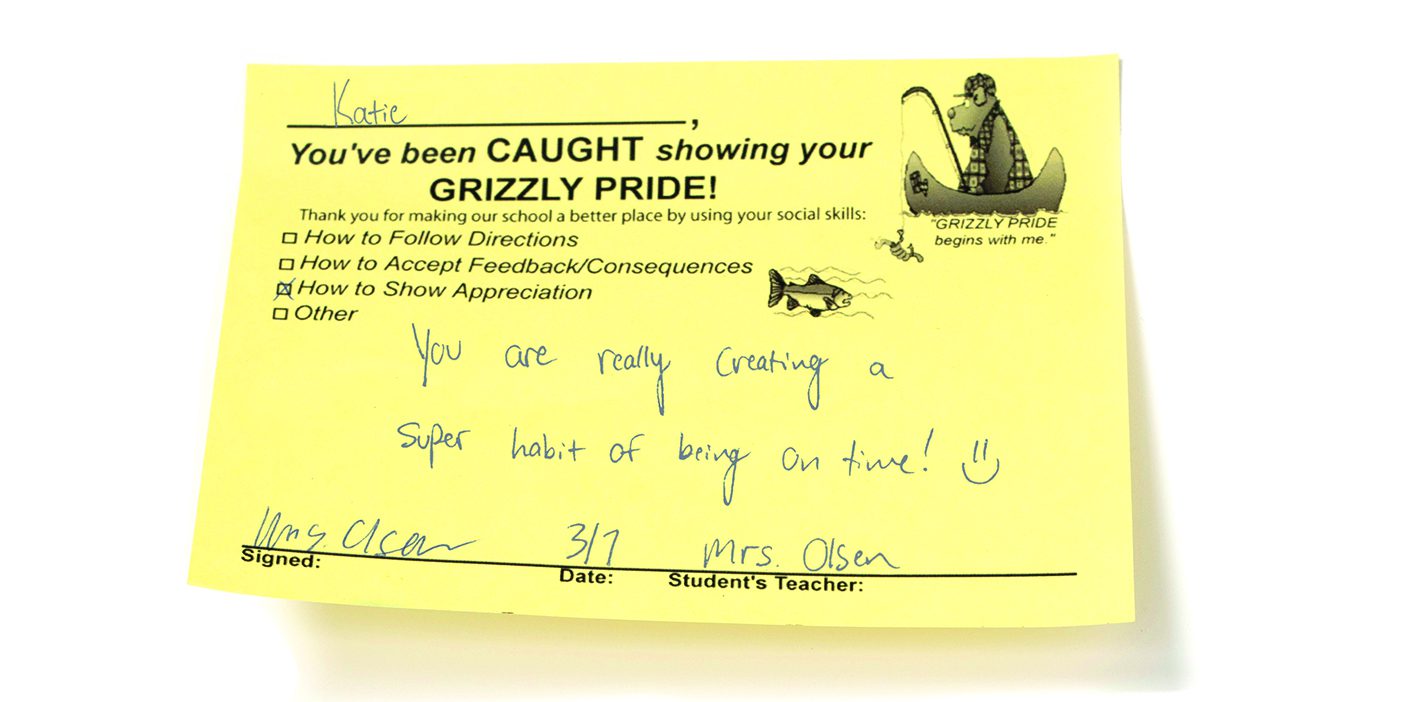 Katie,
You've been CAUGHT showing your
GRIZZLY PRIDE!
Thank you for making our school a better place by using your social skills:
How to Follow Directions
How to Accept Feedback/Consequences
How to Show Appreciation
Other
"GRIZZLY PRIDE
begins with me."
You are really creating a
super habit of being on time!
Mrs. Olsen 3/7 Mrs. Olsen
Signed: Date: Student's Teacher: